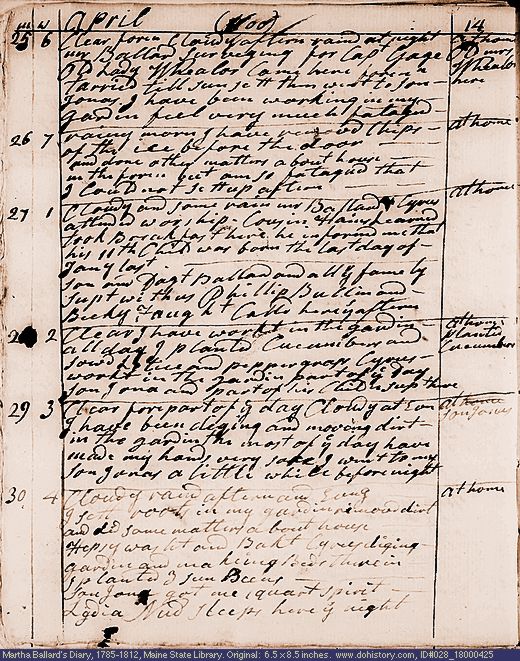 m w April (1800) 14
25 6 Clear foren Cloudy aftern rain at night at home
mr Ballard Surveying for Capt Gage old mrs
old Lady Whealor Came here foren & Whealor
Tarried till sun sett then went to son here
Jonas I have been working in my
gardin feel very much fatagud
26 7 rainy morn I have removed Chips at home
of the ice before the door
and done other matters about house
in the foren but am so fatagud that
I Could not set up aftern at home
27 1 Cloudy and some rain mr Ballard & Cyrus
attend worship Cousin Hains
took Breakfast here he informd me that
his 11th Child was born the last day of
Jany last
son and Dagt Ballard and all ye famely
supt with us Phillip Bullin and
Becky Taught Calld here aftern
28 2 Clear I have workt in the gardin at home
all day I planted Cucumbers and planted
sowd Letice and peppergrass Cyrus Cucumbers
workt in the gardin part of ye day
son Jona and part of his Children sup there
29 3 Clear fore part of ye day Cloudy at Evn at home
I have been diging and moving dirt son Jonas
in the gardin the most of ye day have
made my hands very sore I went to my
son Jonas a little while before night
30 4 Cloudy rain aftern and Evng at home
I sett roots in my gardin removd dirt
and did some matters about house
Hepsy washt and Bakt Cyrus diging
gardin and making Beds therein
I planted 3 sun Beens
son Jona got me 1 quart spirit
Lydia Nud sleeps here ys night
Martha Ballard's Diary, 1785-1812, Maine State Library. Original: 6.5 x 8.5 inches. www.dohistory.com, ID#028_18000425